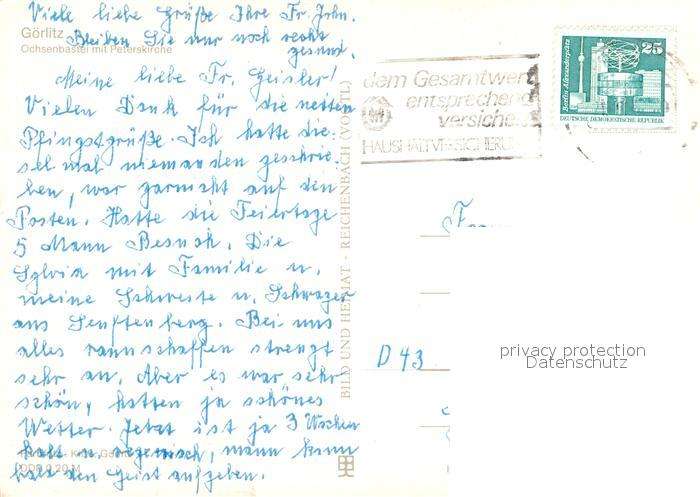 Viele liebe Grüße Ihre Fr. John.
Bleiben Sie nur noch recht
gesund.
Görlitz
Ochsenbastei mit Peterskirche
Meine liebe Fr. Geisler!
Vielen Dank für die netten
Pfingstgrüße. Ich hatte die-
sel mal niemanden geschrie-
ben, war garnicht auf den
Posten. Hatte die Feiertage
5 Mann Besuch. Die
Sylvia mit Familie u.
meine Schweste u. Schwager
aus Senftenberg. Bei uns
alles ranschaffen strengt
sehr an. Aber es war sehr
schön, hatten ja schönes
Wetter. Jetzt ist ja 3 Wochen
kalt u. regnerisch, mann kann
bald den Geist aufgeben.
DDR 0,20 M
BILD UND HEIMAT · REICHENBACH (VOGTL)
dem Gesamtwert
entsprechend
versichern
HAUSHALTVERSICHERUNG
Berlin-Alexanderplatz
25
DEUTSCHE DEMOKRATISCHE REPUBLIK
D 43
privacy protection
Datenschutz